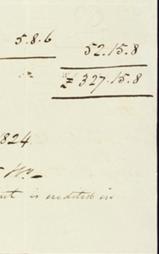 5.8.6 52.15.8
£ 327.15.8
824.
is credited in